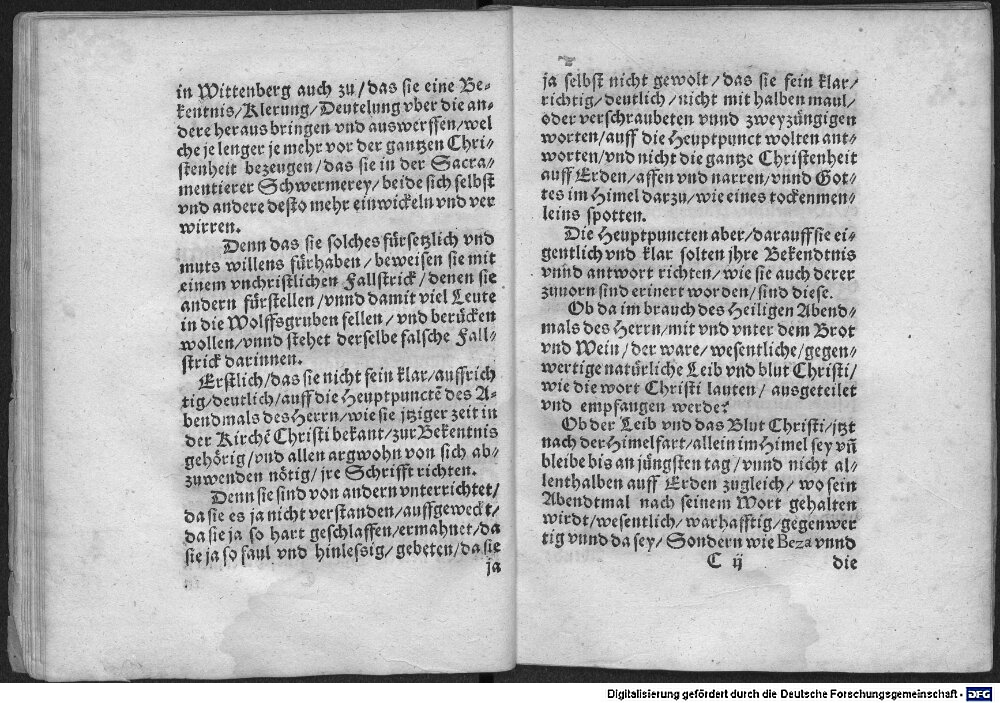 in Wittenberg auch zu/das sie eine Be-
kentnis/Klerung/Deutelung vber die an-
dere heraus bringen vnd auswerffen/wel
che je lenger je mehr vor der gantzen Chri-
stenheit bezeugen/das sie in der Sacra-
mentierer Schwermerey/beide sich selbst
vnd andere desto mehr einwickeln vnd ver
wirren.
Denn das sie solches fürsetzlich vnd
muts willens fürhaben/beweisen sie mit
einem vnchristlichen Fallstrick/denen sie
andern fürstellen/vnnd damit viel Leute
in die Wolffsgruben fellen/vnd berücken
wollen/vnnd stehet derselbe falsche Fall-
strick darinnen.
Erstlich/das sie nicht fein klar/auffrich
tig/deutlich/auff die Heuptpunctē des A-
bendmals des Herrn/wie sie jtziger zeit in
der Kirchē Christi bekant/zur Bekentnis
gehörig/vnd allen argwohn von sich ab-
zuwenden nötig/jre Schrifft richten.
Denn sie sind von andern vnterrichtet/
da sie es ja nicht verstanden/auffgeweckt/
da sie ja so hart geschlaffen/ermahnet/da
sie ja so faul vnd hinlessig/gebeten/da sie
ja
ja selbst nicht gewolt/das sie fein klar/
richtig/deutlich/nicht mit halben maul/
oder verschraubeten vnnd zweyzüngigen
worten/auff die Heuptpunct wolten ant-
worten/vnd nicht die gantze Christenheit
auff Erden/affen vnd narren/vnnd Got-
tes im Himel darzu/wie eines tockenmen-
leins spotten.
Die Heuptpuncten aber/darauff sie ei-
gentlich vnd klar solten jhre Bekendtnis
vnnd antwort richten/wie sie auch derer
zuuorn sind erinert worden/sind diese.
Ob da im brauch des Heiligen Abend-
mals des Herrn/mit vnd vnter dem Brot
vnd Wein/der ware/wesentliche/gegen-
wertige natürliche Leib vnd blut Christi/
wie die wort Christi lauten/ausgeteilet
vnd empfangen werde?
Ob der Leib vnd das Blut Christi/jtzt
nach der Himelfart/allein im Himel sey vñ
bleibe bis an jüngsten tag/vnnd nicht al-
lenthalben auff Erden zugleich/wo sein
Abendtmal nach seinem Wort gehalten
wirdt/wesentlich/warhafftig/gegenwer
tig vnnd da sey/Sondern wie Beza vnnd
C ij die
Digitalisierung gefördert durch die Deutsche Forschungsgemeinschaft - DFG